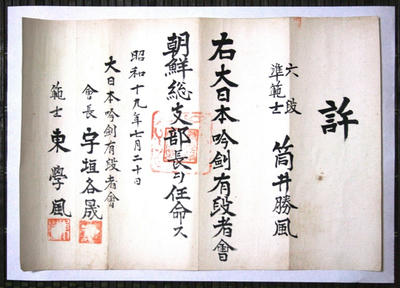 許
六段
準範士 筒井勝風
右大日本吟剣有段者會
朝鮮総支部長ヲ任命ス
昭和十九年七月二十日
大日本吟剣有段者會
會長 宇垣各晟
範士 東學風